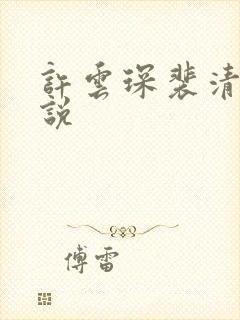 許雲琛裴清
說
傅雷